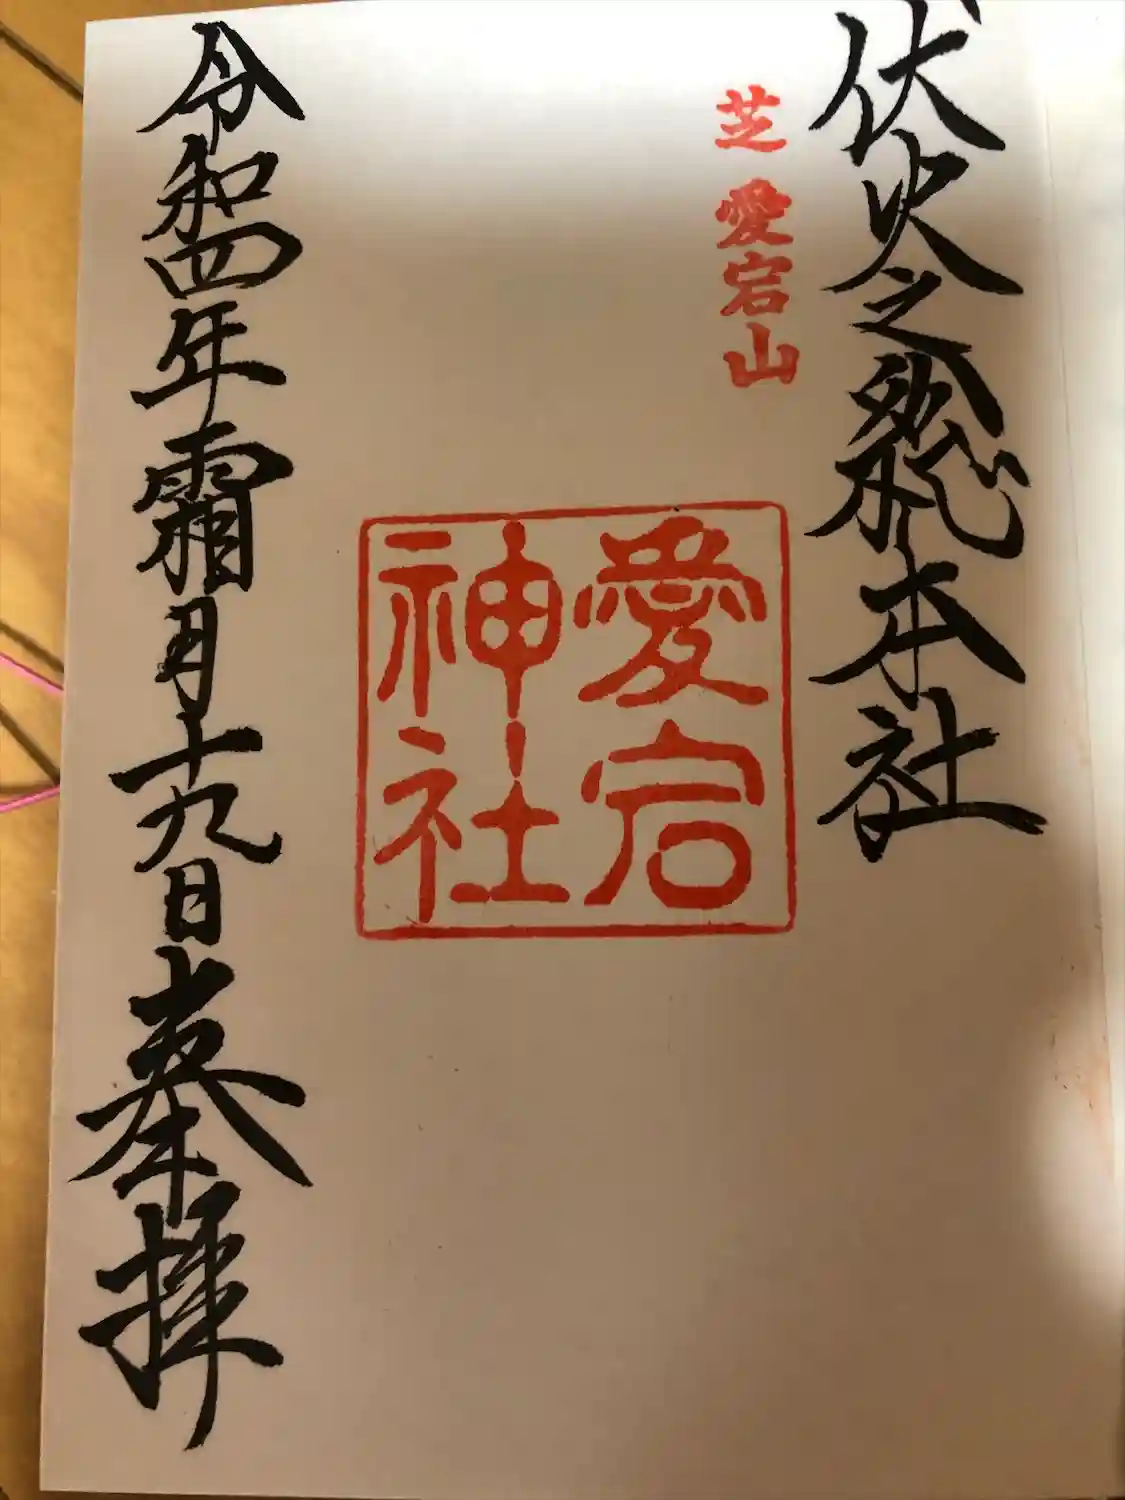 伏火之総本社
芝 愛宕山
愛宕
神社
令和四年霜月十九日奉拝